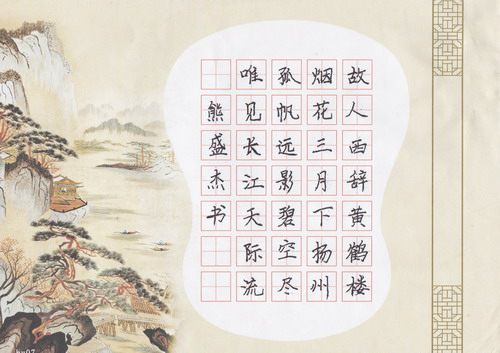 故人西辞黄鹤楼
烟花三月下扬州
孤帆远影碧空尽
唯见长江天际流
熊盛杰书